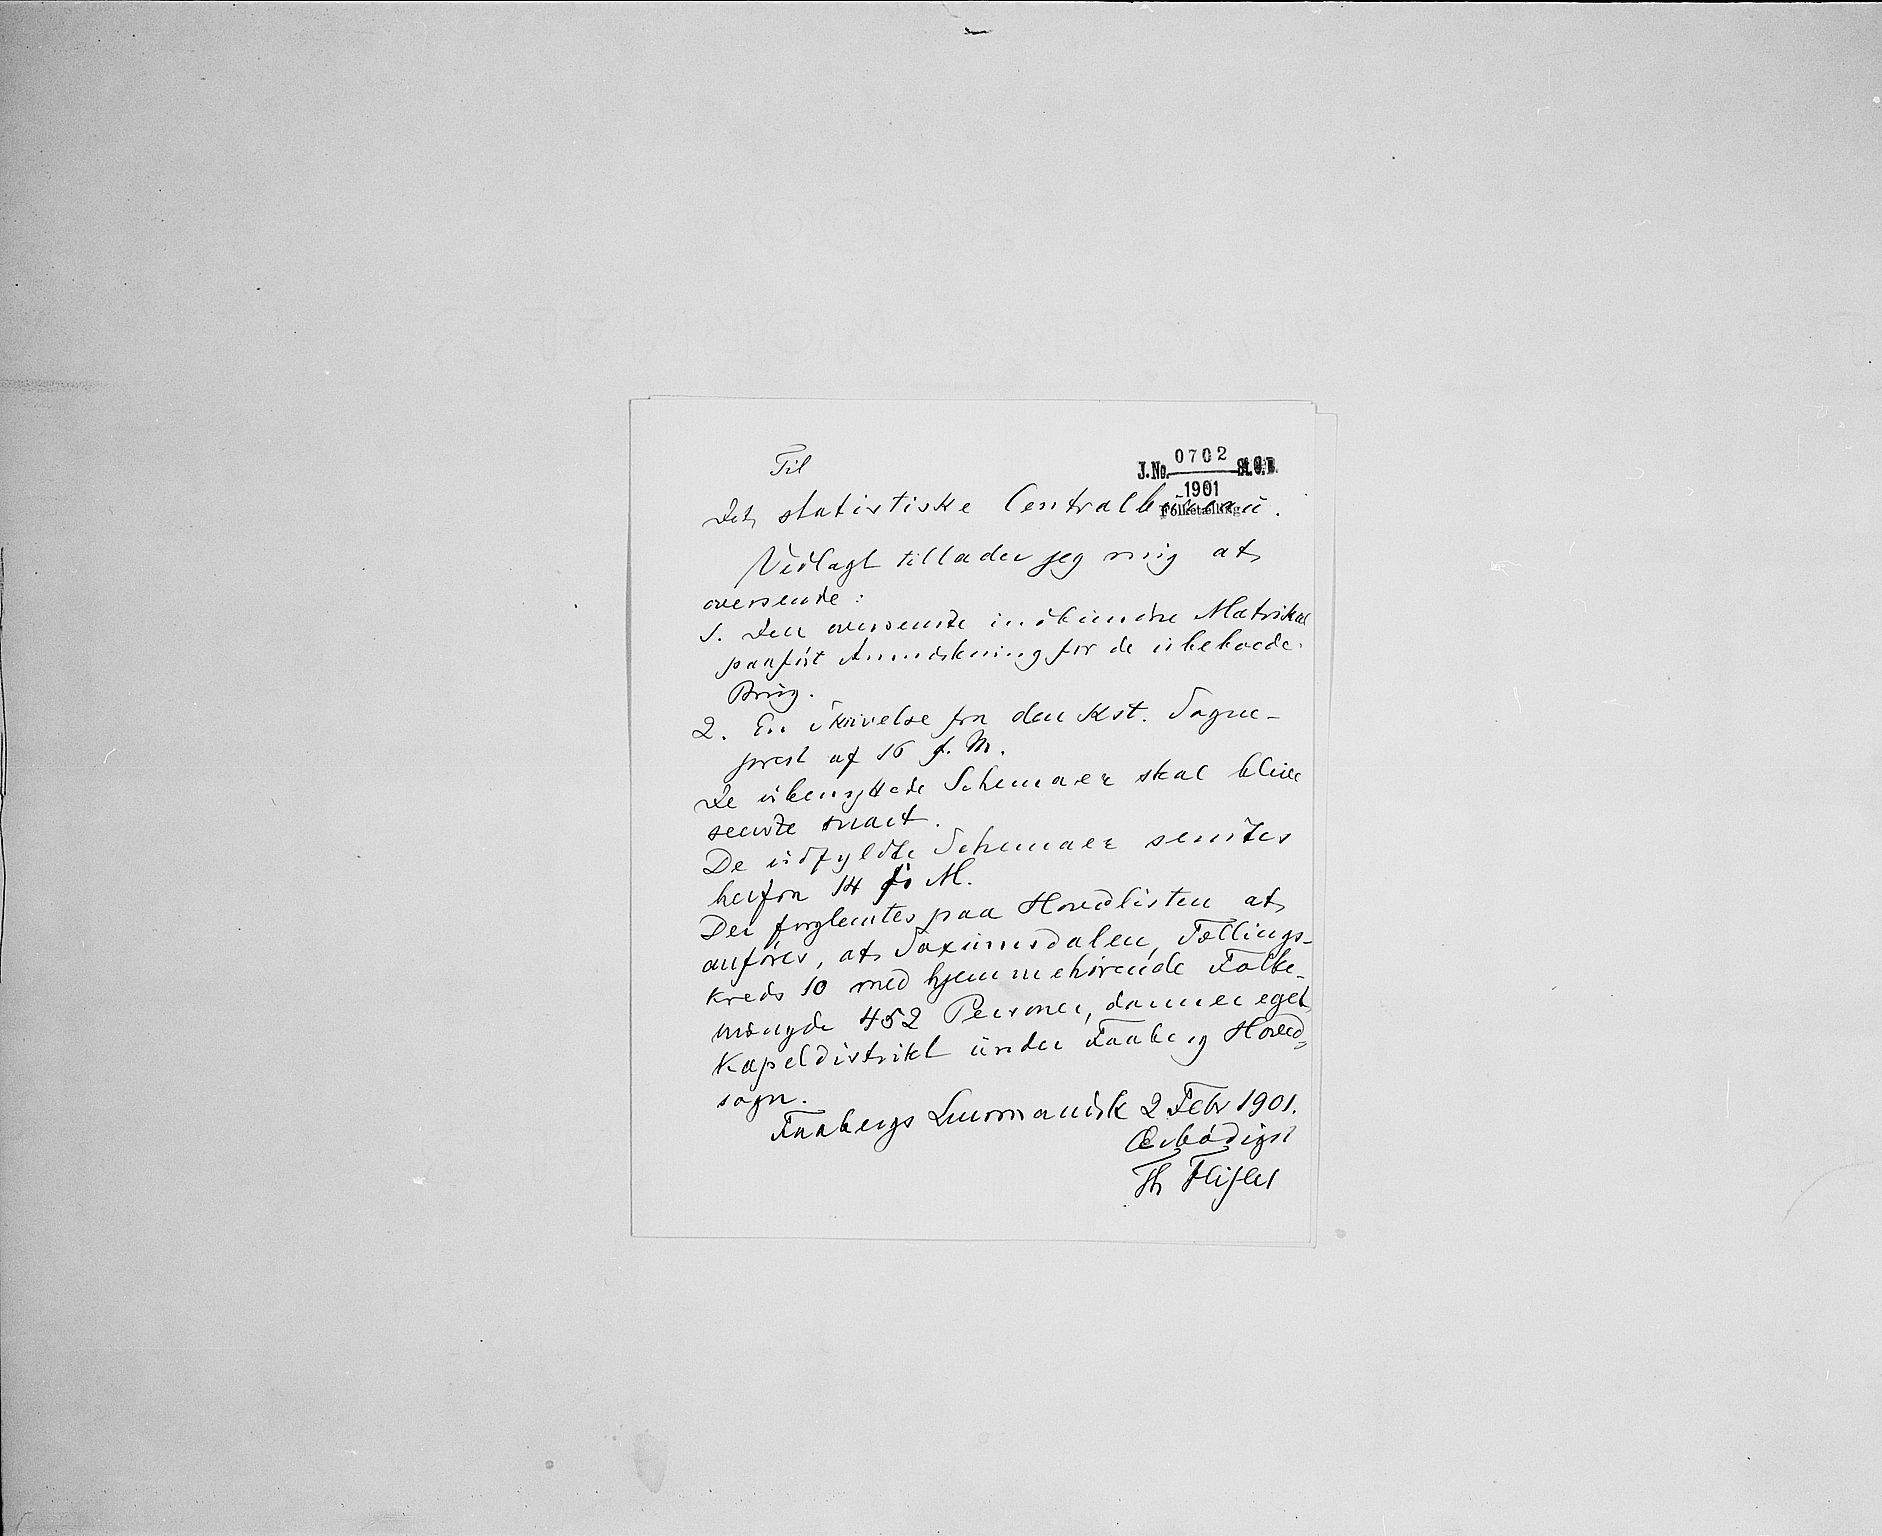 Til
J. No. 0702 St. C. B.
1901
Folketælling
Det statistiske Centralbureau.
Vedlagt tillader jeg mig at
oversende:
1. Den oversendte indbundne Matrikul
paaført Anmerkning for de ubeboede
Brug.
2. En Skrivelse fra den Kst. Sogne-
prest af 16 f. M.
De ubenyttede Schemaer skal blive
sendte snart.
De udfyldte Schemaer sendtes
herfra 14 f. M.
Der forglemtes paa Hovedlisten at
anføres, at Saxumsdalen, Tællings-
kreds 10 med hjemmehørende Folke-
mængde 452 Personer, danner eget
Kapeldistrikt under Faaberg Hoved-
sogn.
Faabergs Lensmandsk 2 Febr 1901.
Ærbødigst
Th